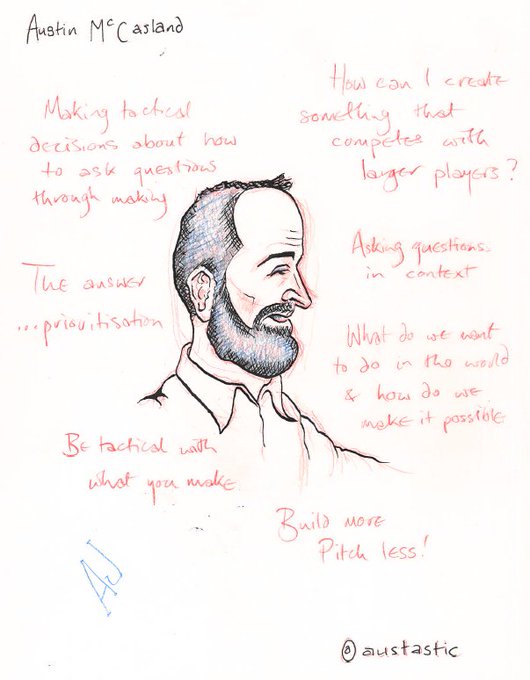 Austin McCasland
Making tactical
decisions about how
to ask questions
through making
How can I create
something that
competes with
larger players?
The answer
...prioritisation
Asking questions
in context
What do we want
to do in the world
& how do we
make it possible
Be tactical with
what you make
Build more
Pitch less!
AJ
@austastic